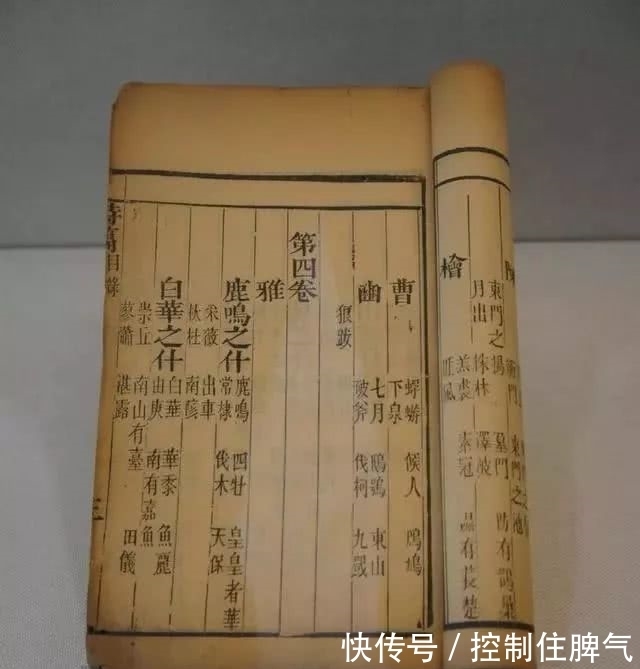 東門之池
東門之楊 墓門 防有鵲巢
月出 株林 澤陂
檜
羔裘 素冠 隰有萇楚
匪風
曹
蜉蝣 候人 鳲鳩
下泉
豳
七月 鴟鴞 東山
破斧 伐柯 九罭
狼跋
第四卷
雅
鹿鳴之什 鹿鳴 四牡 皇皇者華
常棣 伐木 天保
采薇 出車
杕杜 南陔
白華之什 白華 華黍 魚麗
由庚 南有嘉魚
崇丘 南山有臺
蓼蕭 湛露 田儀
詩篇目錄 三
快传号 / 控制住脾气